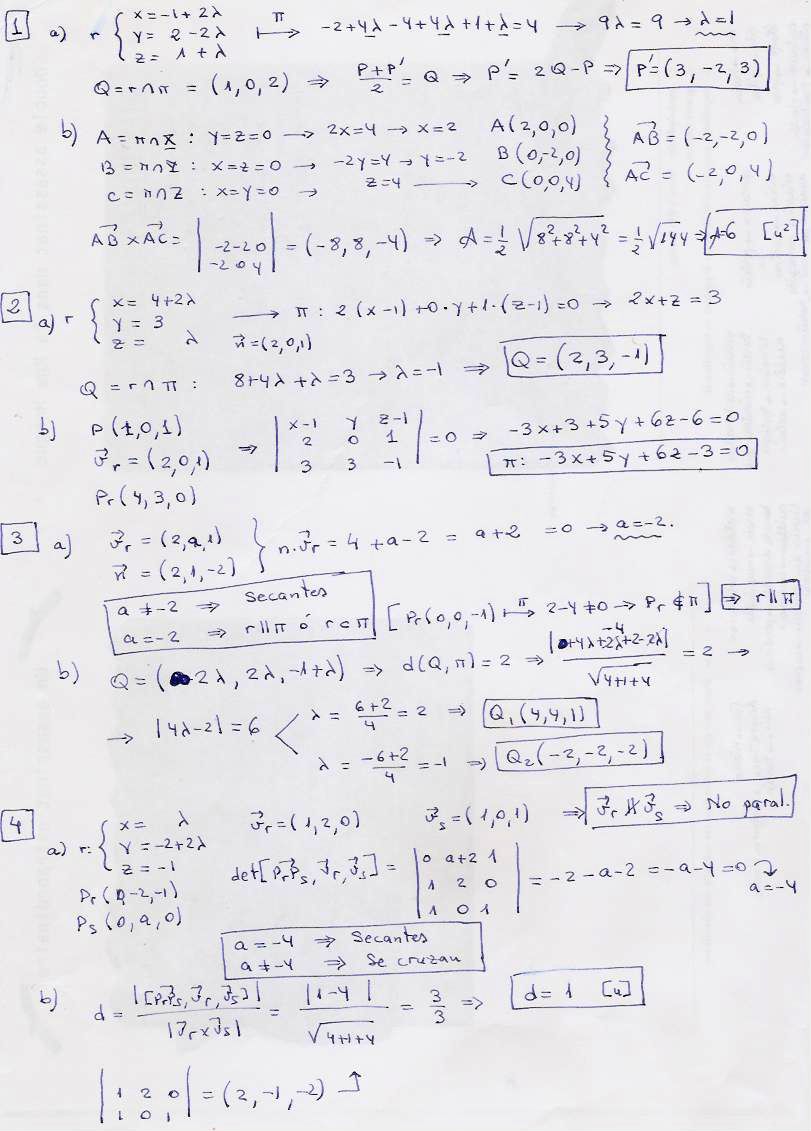 1 a) r { x=-1+2λ
y= 2-2λ
z= 1+λ
π ↦ -2+4λ-4+4λ+1+λ=4 → 9λ=9 → λ=1
Q=r∩π = (1,0,2) ⇒ P+P'/2 = Q ⇒ P'= 2Q-P ⇒ P'=(3,-2,3)
b) A = π∩X : y=z=0 → 2x=4 → x=2 A(2,0,0)
B = π∩Y : x=z=0 → -2y=4 → y=-2 B(0,-2,0)
C = π∩Z : x=y=0 → z=4 → C(0,0,4)
AB = (-2,-2,0)
AC = (-2,0,4)
AB × AC = | -2 -2 0
-2 0 4 | = (-8,8,-4) ⇒ A = 1/2 √8²+8²+4² = 1/2 √144 ⇒ A=6 [u²]
2 a) r { x= 4+2λ
y= 3
z= λ
→ π: 2(x-1)+0·y+1·(z-1)=0 → 2x+z=3
n=(2,0,1)
Q = r∩π : 8+4λ+λ=3 → λ=-1 ⇒ Q=(2,3,-1)
b) P(1,0,1)
vr=(2,0,1)
Pr(4,3,0)
⇒ | x-1 y z-1
2 0 1
3 3 -1 | =0 ⇒ -3x+3+5y+6z-6=0
π: -3x+5y+6z-3=0
3 a) vr = (2,a,1)
n = (2,1,-2)
} n·vr = 4+a-2 = a+2 =0 → a=-2.
a ≠ -2 ⇒ Secantes
a = -2 ⇒ r∥π ó r⊂π
[Pr(0,0,-1) ↦π 2-4≠0 → Pr∉π] ⇒ r∥π
b) Q=(2λ, 2λ, -1+λ) ⇒ d(Q,π)=2 ⇒ |4λ+2λ+2-2λ-4| / √4+1+4 = 2 →
→ |4λ-2|=6 < λ = 6+2/4 = 2 ⇒ Q₁(4,4,1)
λ = -6+2/4 = -1 ⇒ Q₂(-2,-2,-2)
4 a) r: { x= λ
y= -2+2λ
z= -1
vr=(1,2,0) vs=(1,0,1) ⇒ vr ∦ vs ⇒ No paral.
Pr(0,-2,-1)
Ps(0,a,0)
det[PrPs, vr, vs] = | 0 a+2 1
1 2 0
1 0 1 | = -2-a-2 = -a-4=0
a=-4
a = -4 ⇒ Secantes
a ≠ -4 ⇒ Se cruzan
b) d = |[PrPs, vr, vs]| / |vr×vs| = |1-4| / √4+1+4 = 3/3 ⇒ d= 1 [u]
| 1 2 0
1 0 1 | = (2,-1,-2)